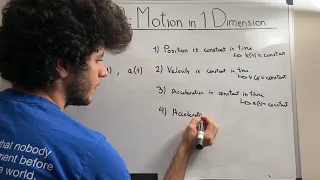 : Motion in 1 Dimension
1) Position is constant in time
↳ x(t) = constant
), a(t)
2) Velocity is constant in time
↳ v(t) = constant
3) Acceleration is constant in time
↳ a(t) = constant
4) Accelerati
that nobody
ment before
the world.